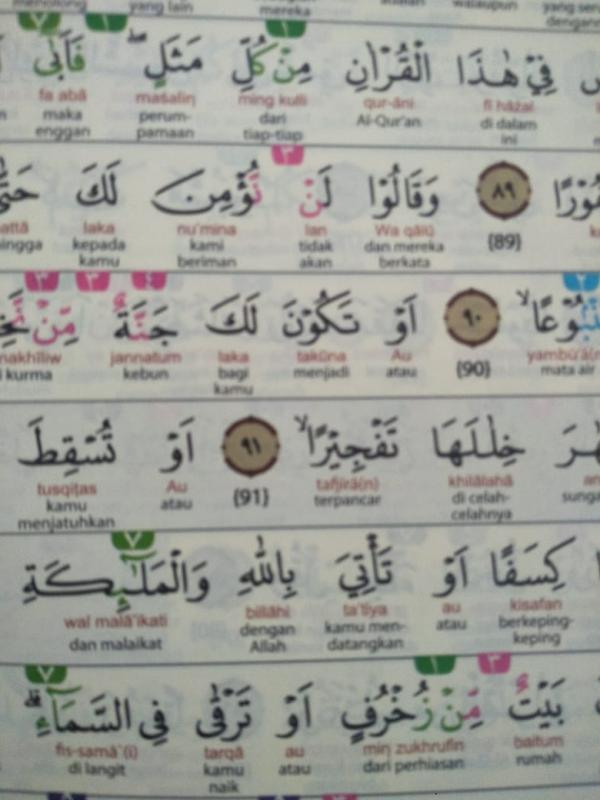 menolong yang lain mereka walaupun
فِيْ هٰذَا الْقُرْاٰنِ مِنْ كُلِّ مَثَلٍۖ فَاَبٰٓى
fī hāżal qur-āni ming kulli mašaliη fa abā
di dalam ini Al-Qur'an dari tiap-tiap perum-pamaan maka enggan
﴿٨٩﴾ وَقَالُوْا لَنْ نُّؤْمِنَ لَكَ
{89} Wa qālū lan nu'mina laka
dan mereka berkata tidak akan kami beriman kepada kamu
﴿٩٠﴾ اَوْ تَكُوْنَ لَكَ جَنَّةٌ مِّنْ
{90} Au takūna laka jannatum
mata air atau menjadi bagi kamu kebun kurma
خِلٰلَهَا تَفْجِيْرًاۙ ﴿٩١﴾ اَوْ تُسْقِطَ
khilālahā tafjīrā(n) {91} Au tusqiṭas
di celah-celahnya terpancar atau kamu menjatuhkan
كِسَفًا اَوْ تَأْتِيَ بِاللّٰهِ وَالْمَلٰۤىِٕكَةِ
kisafan au ta'tiya billāhi wal malā'ikati
berkeping-keping atau kamu men-datangkan dengan Allah dan malaikat
بَيْتٌ مِّنْ زُخْرُفٍ اَوْ تَرْقٰى فِى السَّمَاۤءِۗ
baitum miη zukhrufin au tarqā fis-samā'(i)
rumah dari perhiasan atau kamu naik di langit